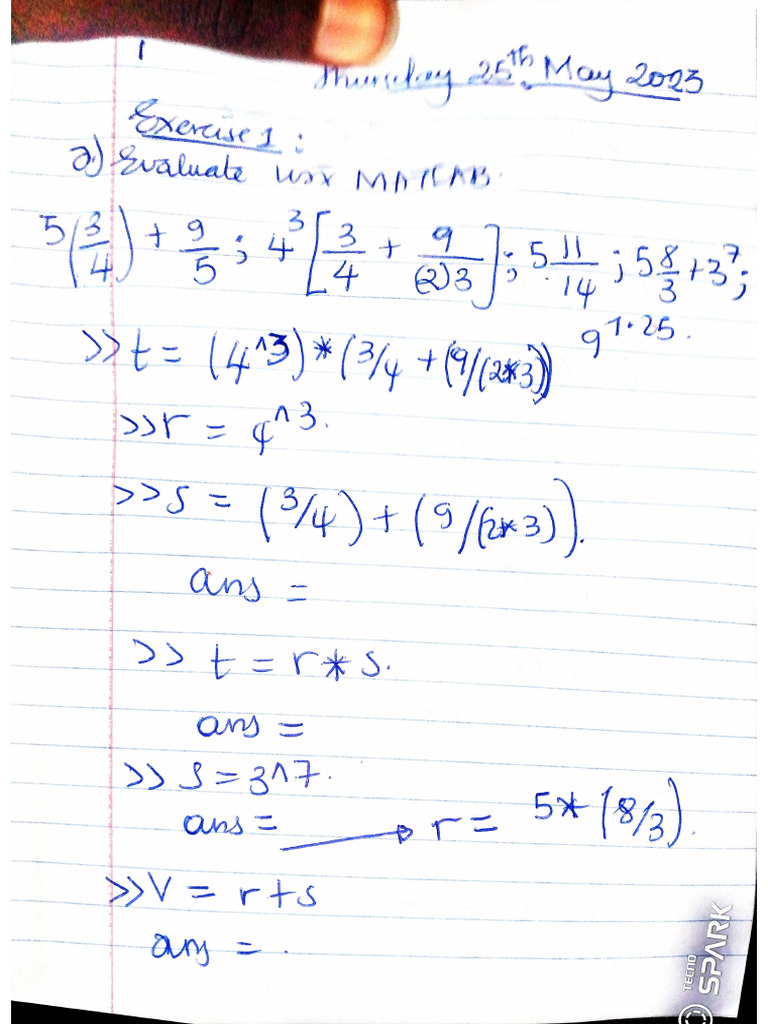 1
Thursday 25th May 2023
Exercise 1:
a.) Evaluate use MATLAB
5(3/4) + 9/5 ; 4^3 [3/4 + 9/(2)3] ; 5 11/14 ; 5 8/3 + 3^7 ;
9^1.25.
>> t = (4^3)*(3/4 + (9/(2*3))
>> r = 4^3.
>> s = (3/4) + (9/(2*3)).
ans =
>> t = r * s.
ans =
>> s = 3^7.
ans = → r = 5* (8/3).
>> V = r+s
ans = .
TECNO
SPARK